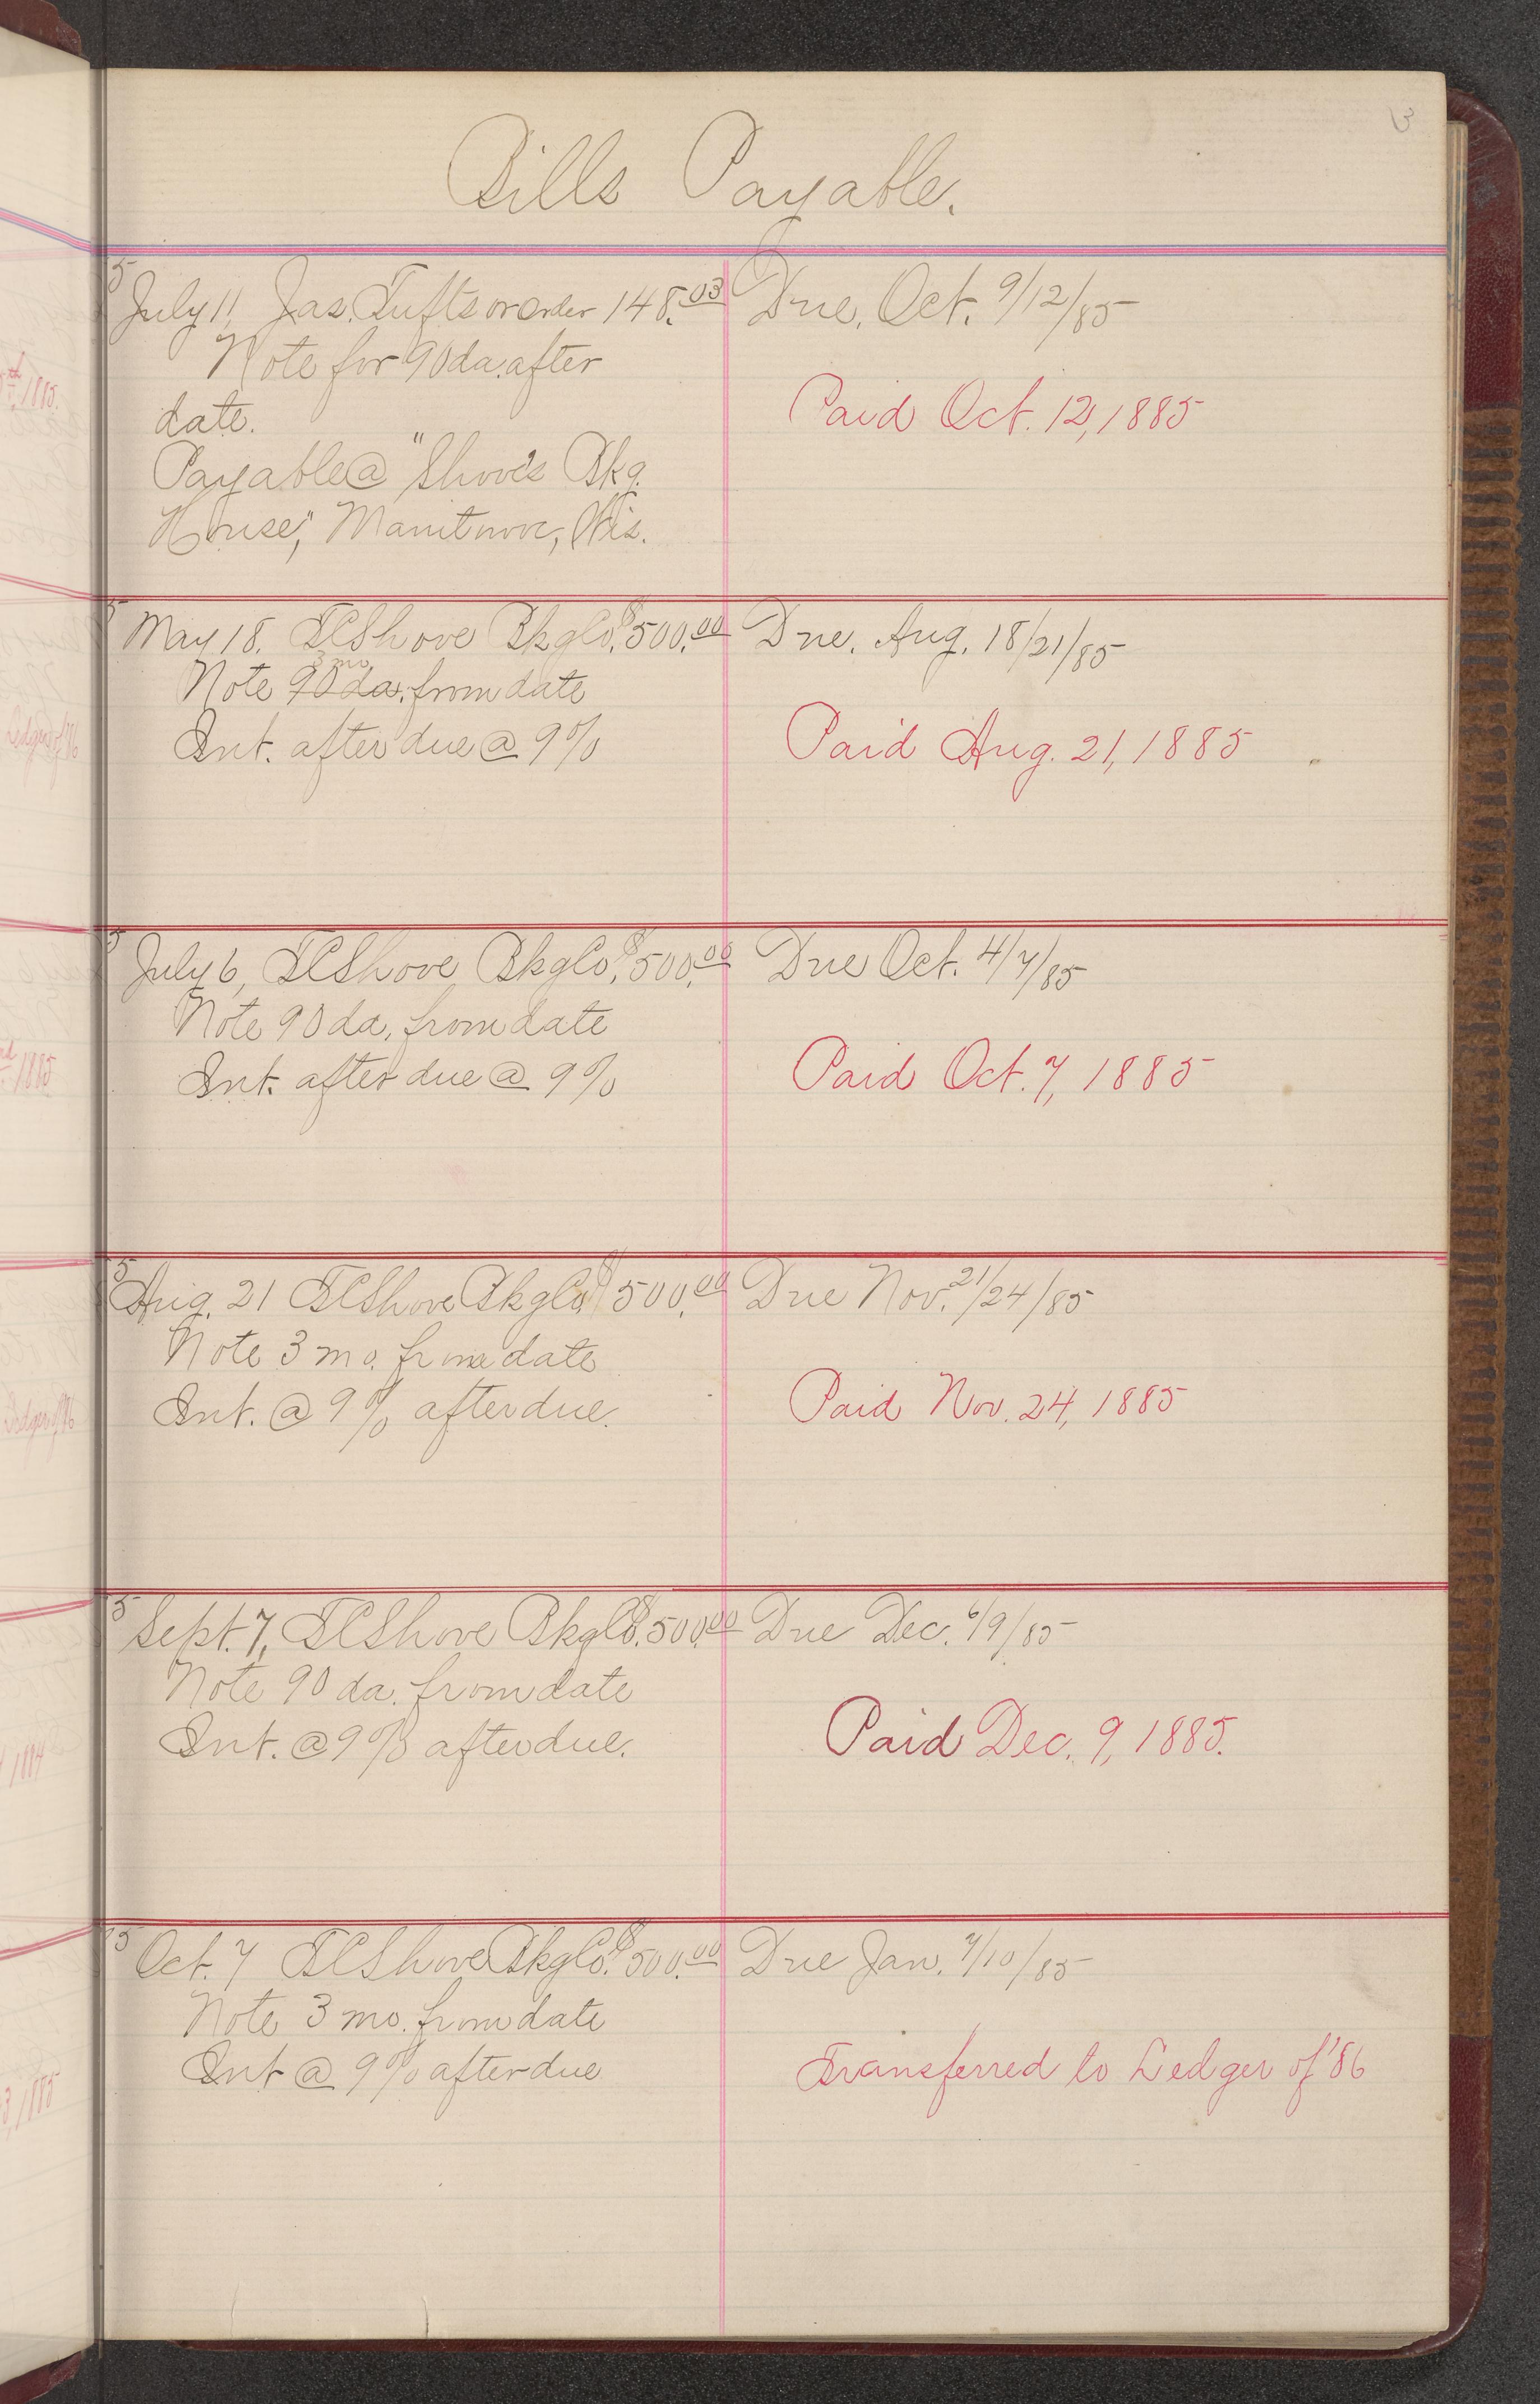 3
Bills Payable.
5
July 11, Jas. Tufts or order 148.03 Due, Oct. 9/12/85
Note for 90 da. after
date.
Paid Oct. 12, 1885
Payable @ "Shove's Bkg.
House," Manitowoc, Wis.
5
May 18, TCShove BkgCo. $500.00 Due, Aug. 18/21/85
3 mo
Note 90 da. from date
Int. after due @ 9%
Paid Aug. 21, 1885
5
July 6, TCShove BkgCo. $500.00 Due Oct. 4/7/85
Note 90 da. from date
Int. after due @ 9%
Paid Oct. 7, 1885
5
Aug. 21 TCShove BkgCo. $500.00 Due Nov. 21/24/85
Note 3 mo. from date
Int. @ 9% after due.
Paid Nov. 24, 1885
5
Sept. 7, TCShove BkgCo. $500.00 Due Dec. 6/9/85
Note 90 da. from date
Int. @ 9% after due.
Paid Dec. 9, 1885.
5
Oct. 7 TCShove BkgCo. $500.00 Due Jan. 7/10/85
Note 3 mo. from date
Int @ 9% after due
Transferred to Ledger of '86
1885.
Ledger of '86
1885
Ledger of '86
1884
3, 1885